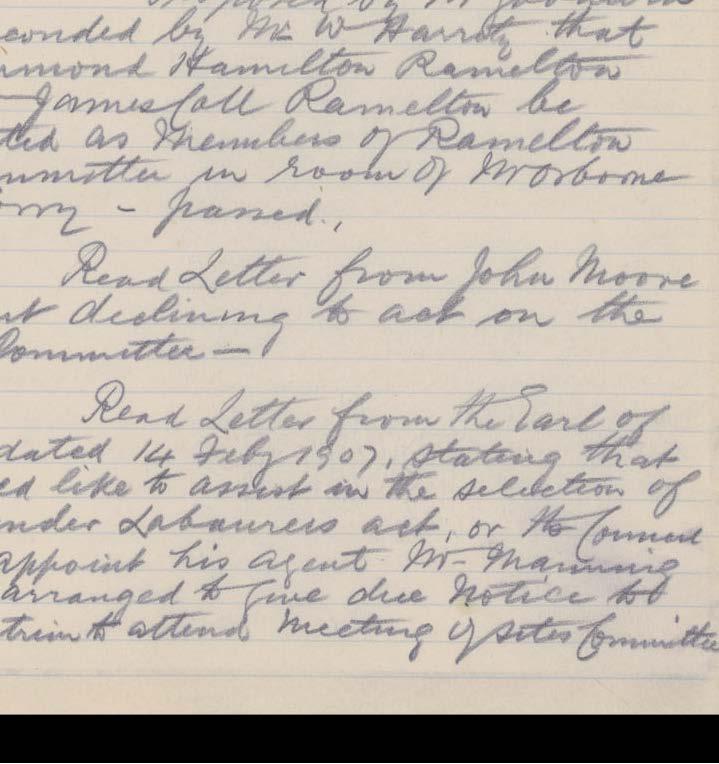 econded by Mr W Harrity that
mond Hamilton Ramelton
James Call Ramelton be
ted as Members of Ramelton
mmittee in room of Mr Osborne
– passed.,
Read Letter from John Moore
declining to act on the
Committee —
Read Letter from the Earl of
dated 14 Feby 1907, stating that
ed like to assist in the selection of
nder Labourers act, or the Council
appoint his agent Mr Manning
arranged to give due Notice to
trim to attend Meeting of sites Committee